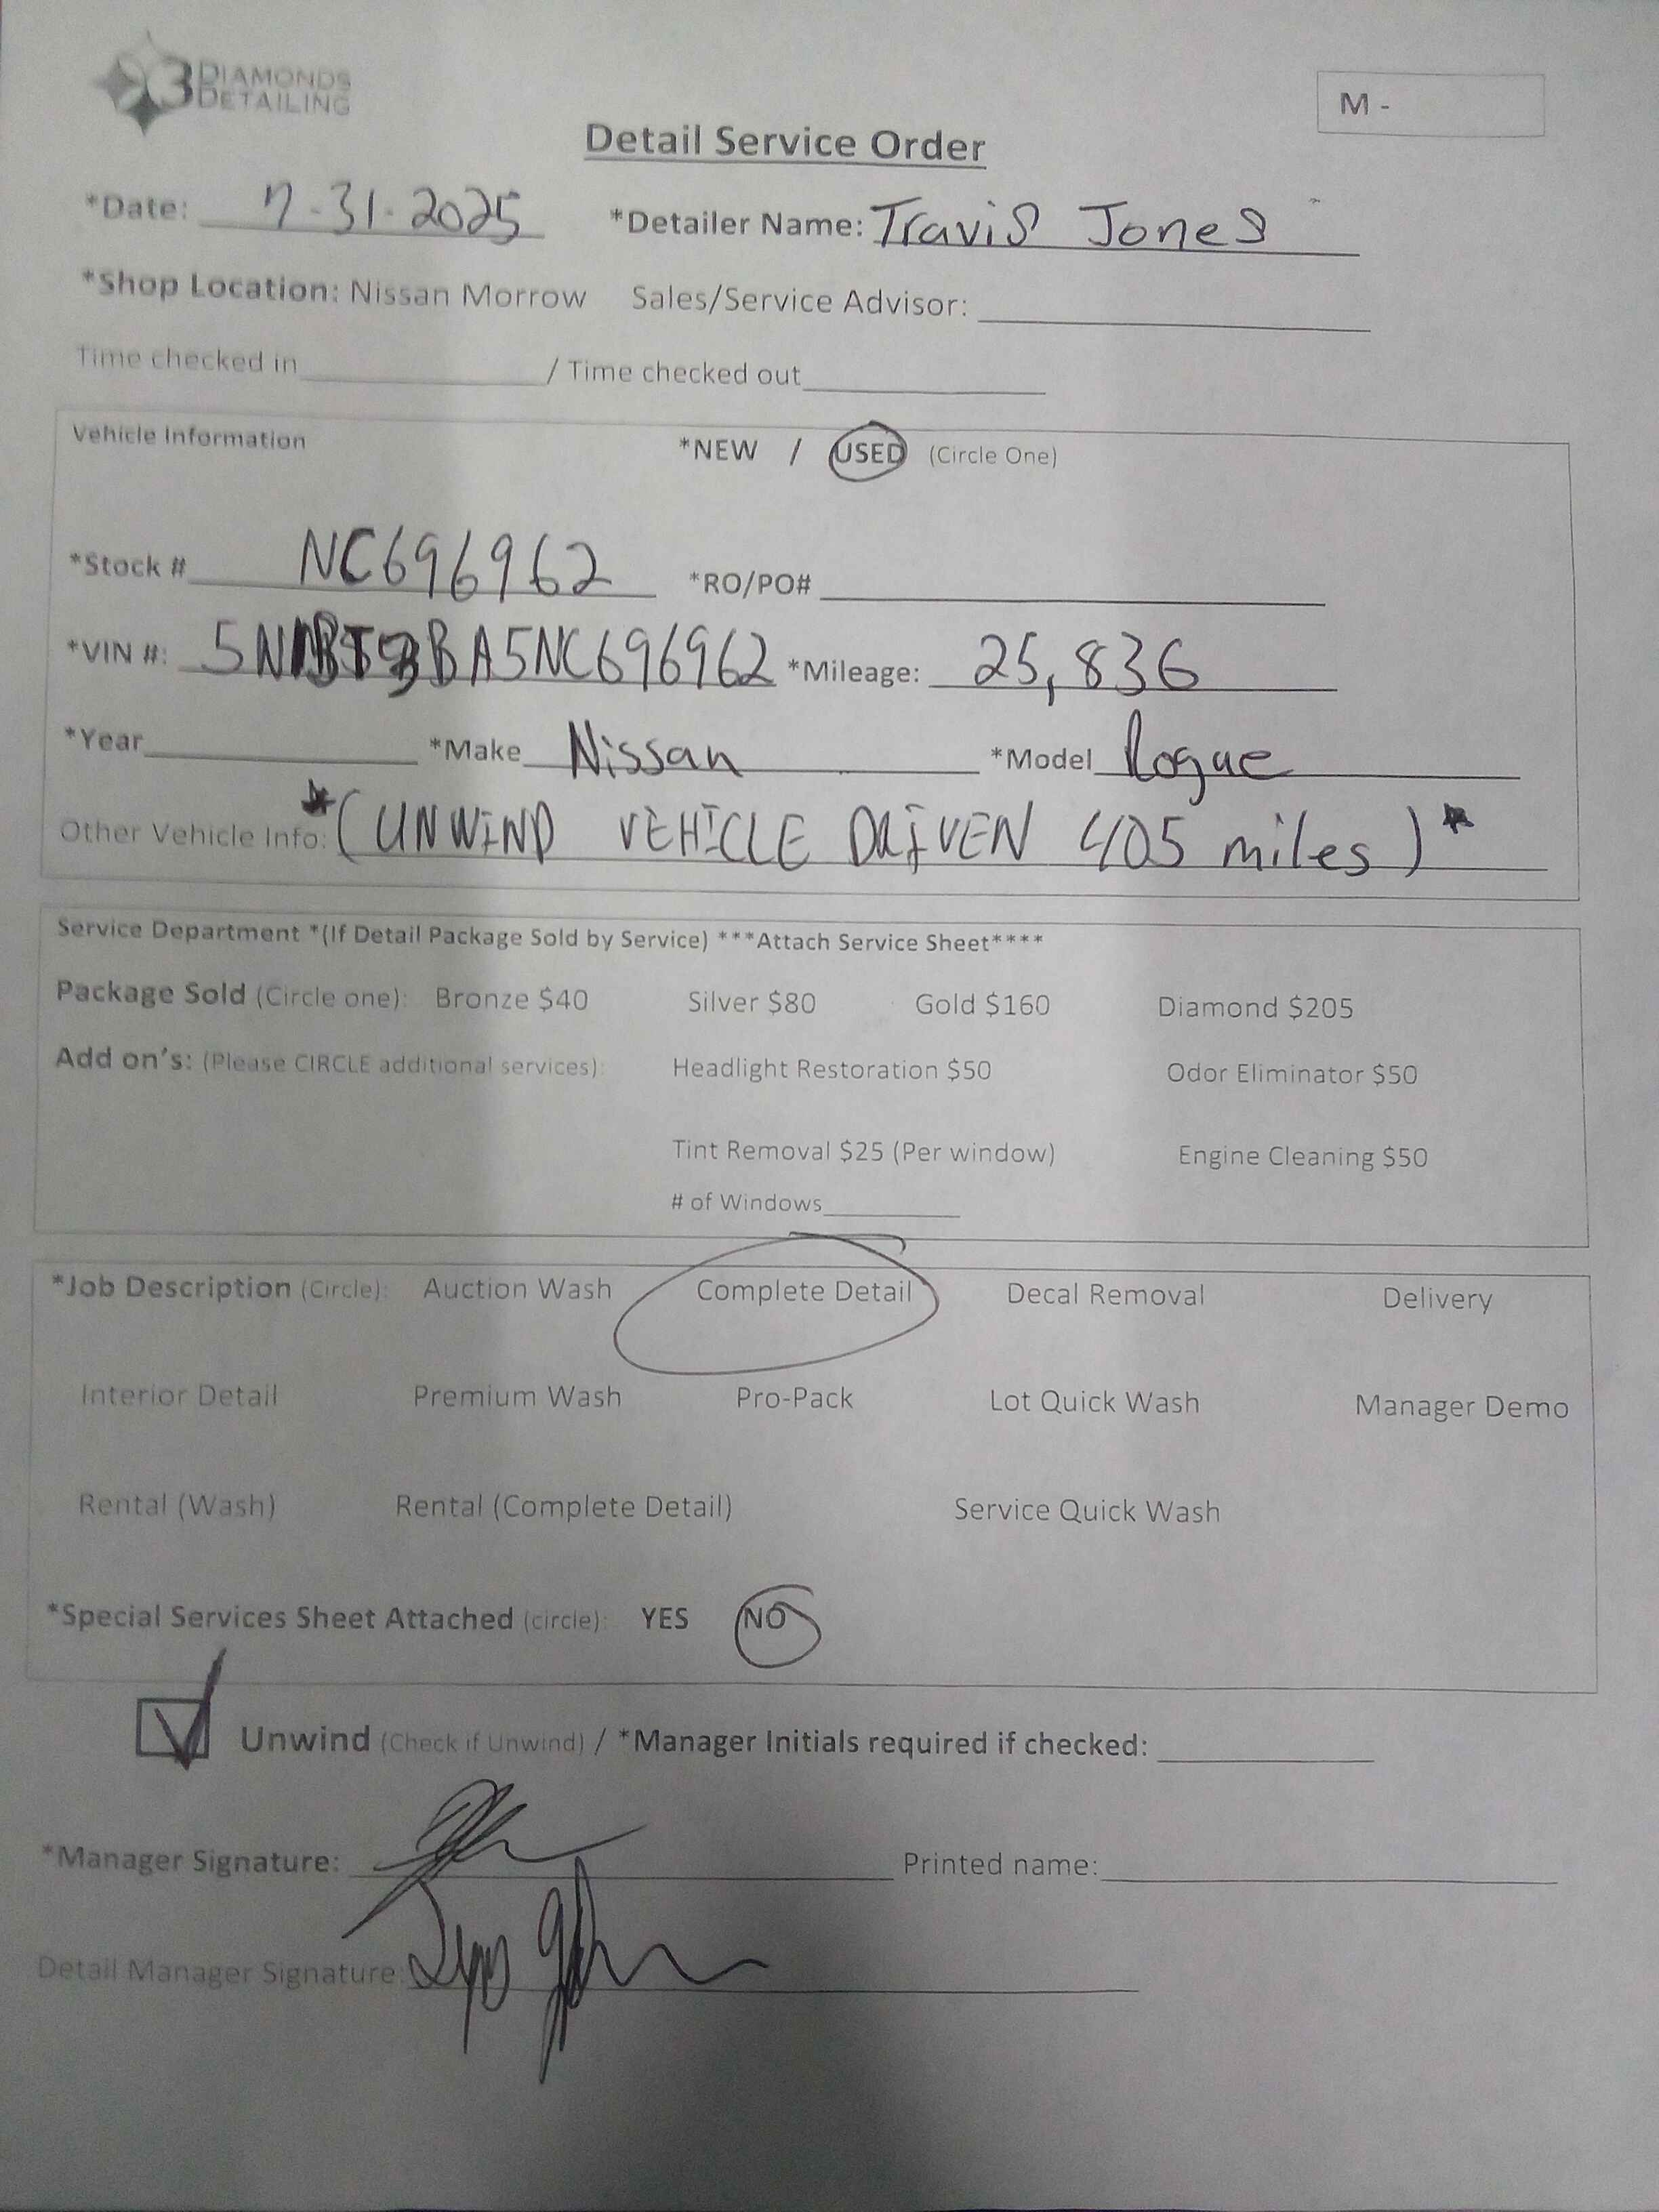 3 DIAMONDS DETAILING
M -
Detail Service Order
*Date: 7-31-2025 *Detailer Name: Travis Jones
*Shop Location: Nissan Morrow Sales/Service Advisor:
Time checked in / Time checked out
Vehicle Information *NEW / USED (Circle One)
*Stock # NC696962 *RO/PO#
*VIN #: *Mileage: 25,836
*Year *Make Nissan *Model Rogue
Other Vehicle Info: *(UNWIND VEHICLE DRIVEN 405 miles)*
Service Department *(If Detail Package Sold by Service) ***Attach Service Sheet****
Package Sold (Circle one): Bronze $40 Silver $80 Gold $160 Diamond $205
Add on's: (Please CIRCLE additional services): Headlight Restoration $50 Odor Eliminator $50
Tint Removal $25 (Per window) Engine Cleaning $50
# of Windows
*Job Description (Circle): Auction Wash Complete Detail Decal Removal Delivery
Interior Detail Premium Wash Pro-Pack Lot Quick Wash Manager Demo
Rental (Wash) Rental (Complete Detail) Service Quick Wash
*Special Services Sheet Attached (circle): YES NO
Unwind (Check if Unwind) / *Manager Initials required if checked:
*Manager Signature: Printed name:
Detail Manager Signature: